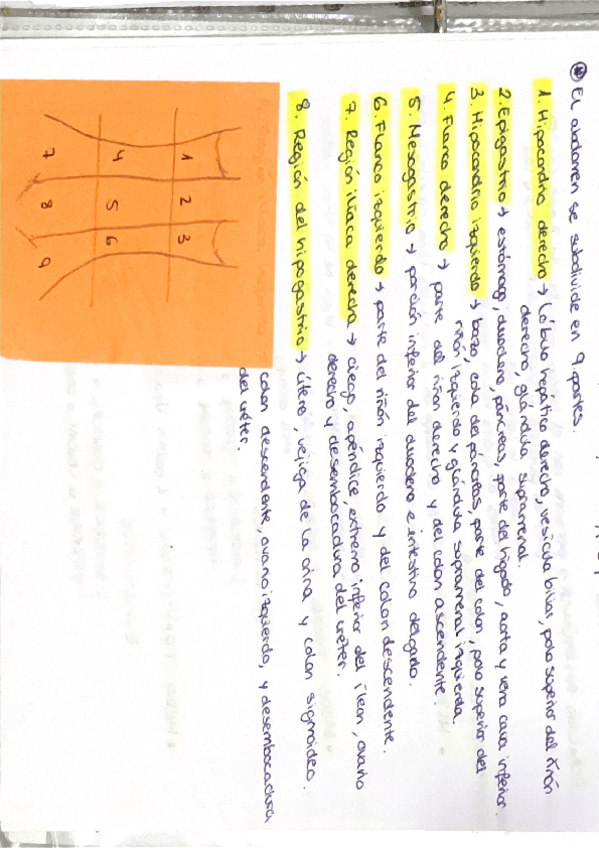 * El abdomen se subdivide en 9 partes.
1. Hipocondrio derecho → Lóbulo hepático derecho, vesícula biliar, polo superior del riñón
derecho, glándula suprarrenal.
2. Epigastrio → estómago, duodeno, páncreas, parte del hígado, aorta y vena cava inferior.
3. Hipocondrio izquierdo → bazo, cola del páncreas, parte del colon, polo superior del
riñón izquierdo y glándula suprarrenal izquierda.
4. Flanco derecho → parte del riñon derecho y del colon ascendente.
5. Mesogastrio → porción inferior del duodeno e intestino delgado.
6. Flanco izquierdo → parte del riñón izquierdo y del colon descendente.
7. Región ilíaca derecha → ciego, apéndice, extremo inferior del íleon, ovario
derecho y desembocadura del uréter.
8. Región del hipogastrio → útero, vejiga de la orina y colon sigmoideo.
colon descendente, ovario izquierdo, y desembocadura
del uréter.
1 2 3
4 5 6
7 8 9